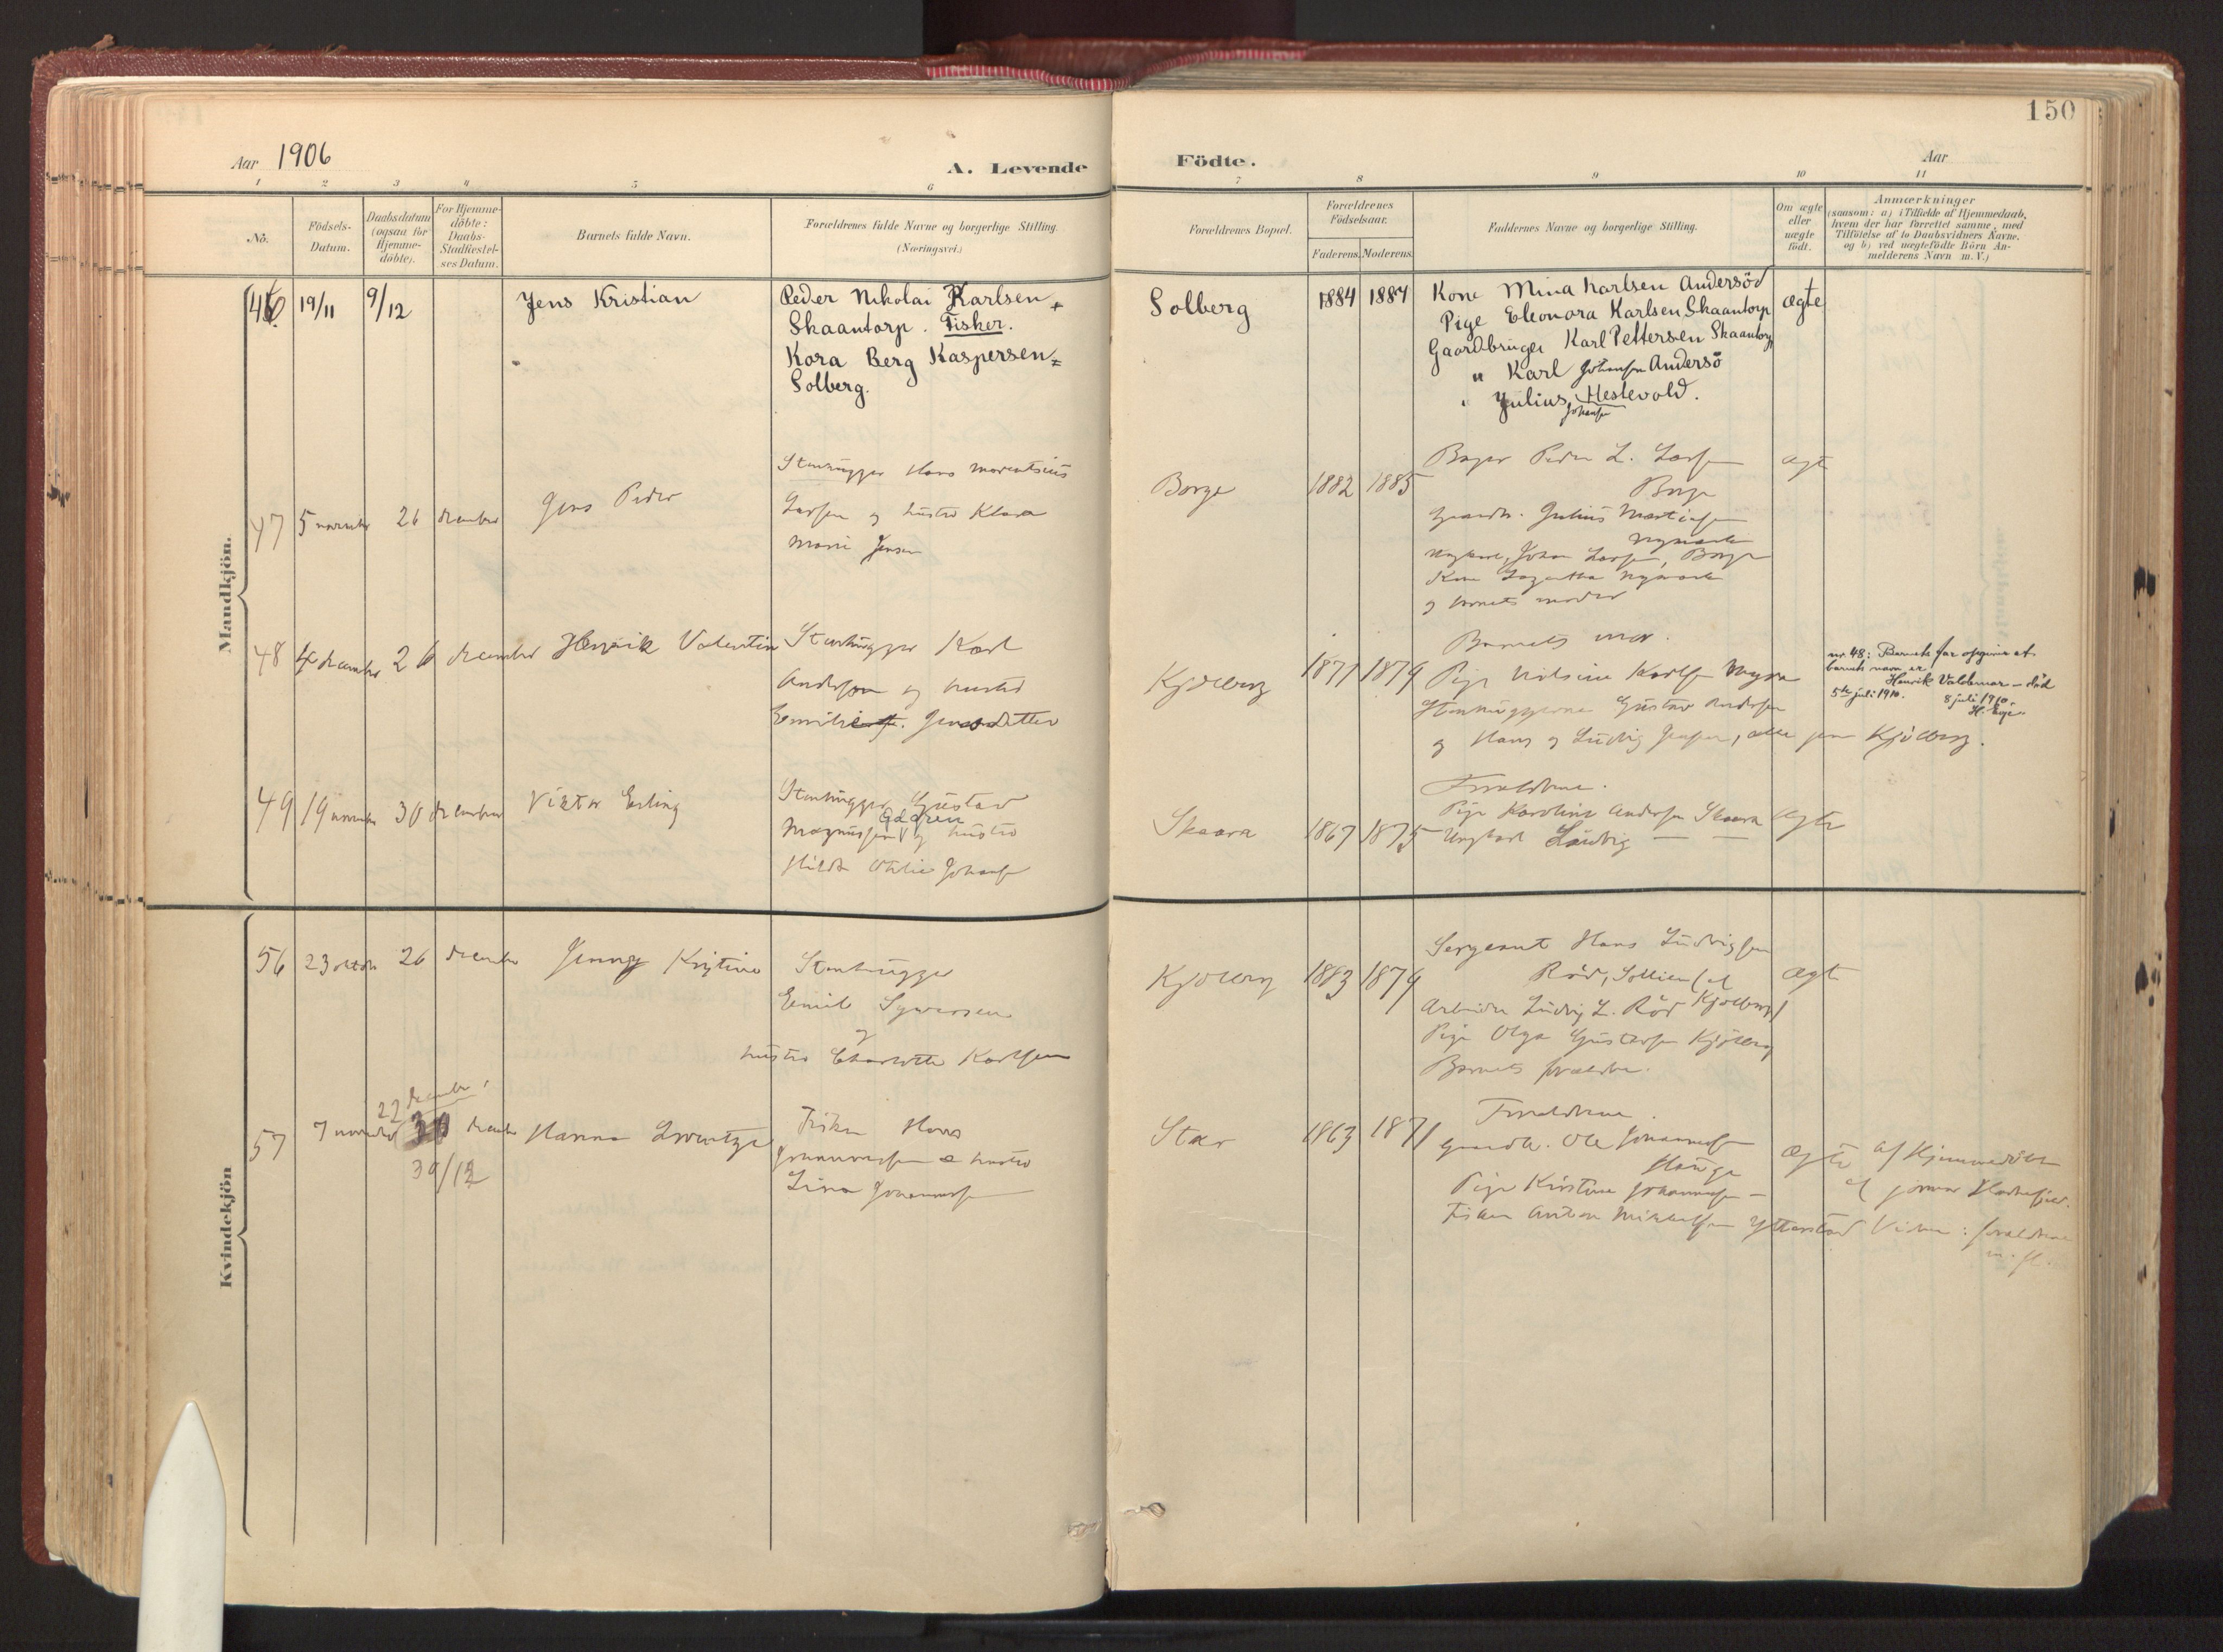 150
Aar 1906
A. Levende
Födte.
Aar
1 2 3 4 5 6
7 8 9 10 11
No.
Födsels-
Datum.
Daabsdatum
(ogsaa för
Hjemme-
döbte).
For Hjemme-
döbte:
Daabs-
Stadfæstel-
ses Datum.
Barnets fulde Navn.
Forældrenes fulde Navne og borgerlige Stilling.
(Næringsvei.)
Forældrenes Bopæl.
Forældrenes
Födselsaar.
Faderens. Moderens.
Faddernes Navne og borgerlige Stilling.
Om ægte
eller
uægte
födt.
Anmærkninger
(saasom: a) i Tilfælde af Hjemmedaab,
hvem der har forrettet samme, med
Tilföielse af to Daabsvidners Navne,
og b) ved uægtefödte Börn An-
melderens Navn m. V.)
Mandkjön.
46 19/11 9/12 Jens Kristian
Peder Nikolai Karlsen
Skaantorp. Fisker.
Kora Berg Kaspersen
Solberg.
Solberg 1884 1884
Kone Mina Karlsen Andersöd
Pige Eleonora Karlsen Skaantorp
Gaardbruger Karl Pettersen Skaantorp
" Karl Johansen Andersö
" Julius Hestevold.
Johansen
ægte
47 5 november 26 december Jens Peder
Stenhugger Hans Marentsius
Larsen og hustru Klara
Marie Jensen
Borge 1882 1885
Peder L. Larsen
Borge
Gaardbr. Julius Martinsen
Nymark
Ungkarl Johan Larsen, Borge
Kone Nymark
og barnets moder
ægte
48 4 december 26 december Henrik Valentin
Stenhugger Karl
Anderson og hustru
Emilie Jensdatter
Kjölberg 1871 1879
Barnets mor.
Pige Karlsen
Stenhuggerne Gustav Andersen
og Hans og Ludvig Jensen, alle fra Kjölberg.
nr 48: Barnets far opgiver at
barnets navn er
Henrik Valdemar – död
5te juli 1910. 8 juli 1910
49 19 november 30 december Viktor Erling
Stenhugger Gustav
Magnussen og hustru
Hilda Otilie Johansen
Skaara 1867 1875
Forældrene.
Pige Karoline Andersen Skaara
Ungkarl Ludvig — —
ægte
Kvindekjön
56 23 oktob 26 december Jenny Kristine
Stenhugger
Emil Syversen
og
hustru Charlotte Karlsen
Kjölberg 1883 1879
Sergeant Hans Ludvigsen
Röd,
Arbeider Ludvig L. Röd Kjölberg
Pige Olga Gustavsen Kjölberg
Barnets forældre.
ægte
22 december
57 7 november 30 december Hanna
30/12
Fisker Hans
Johannessen & hustru
Lina Johannessen
1863 1871
Forældrene.
Gaardbr. Ole Johannessen
Hauge
Pige Kristine Johannessen —
Fisker Anton Mikkelsen
ægte
af Hjemmedöbt
af
Vidner: forældrene
m. fl.